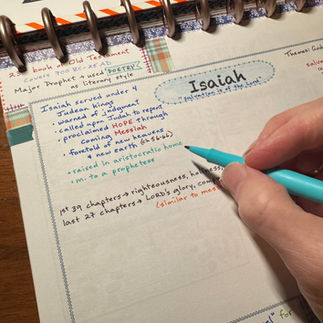 book Old Testament
Major Prophet → used "POETRY"
as literary style
Isaiah
"Salvation is of the Lord"
Isaiah served under 4
Judean kings
• warned of judgment
• called upon Judah to repent
• proclaimed HOPE through
coming Messiah
• foretold of new heavens
& new earth (ch 65-66)
• raised in aristocratic home
• m. to a prophetess
1st 39 chapters → righteousness, holiness,
last 27 chapters → LORD's glory,
(similar to